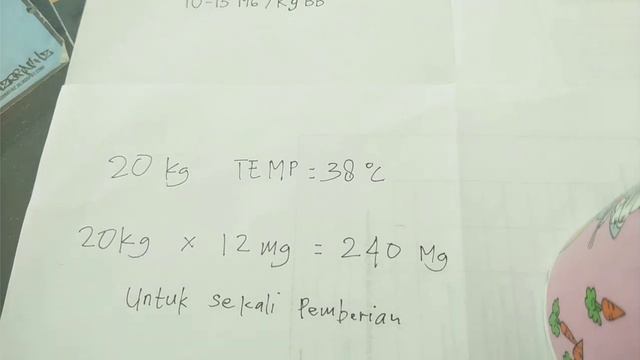 10-15 MG/kgBB
20 kg TEMP = 38°C
20kg x 12mg = 240 Mg
Untuk sekali Pemberian